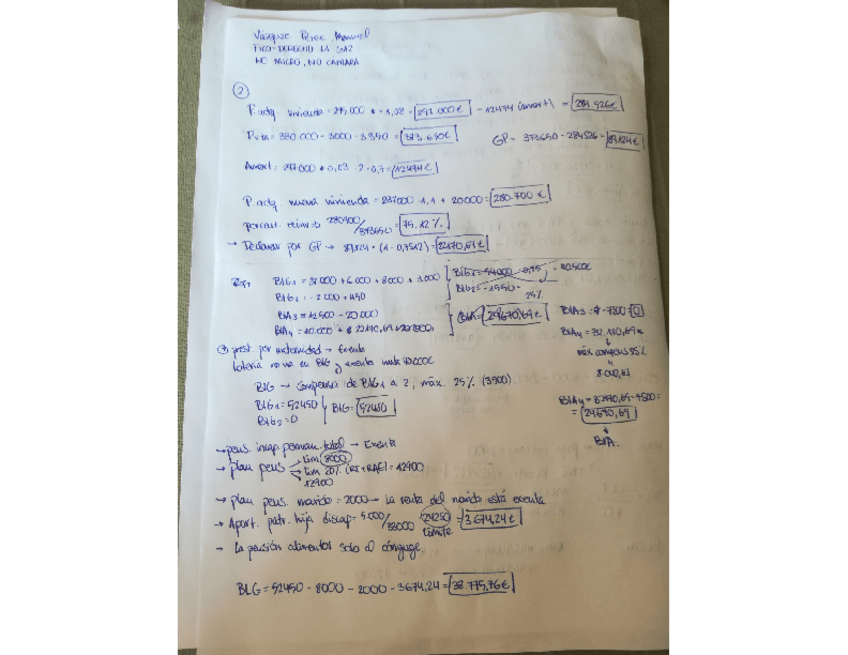 Vazquez Pérez, Manuel
FICO-DERECHO
NC MICRO, NO CAMARA
2
P. adq vivienda = 275.000 · 1,08 = 297.000€ - 12474 (amort) = 284.526€
P. vta = 380.000 - 3000 - 3.350 = 373.650€ GP = 373650 - 284526 = 89.124€
Amort: 297000 · 0,03 · 2 · 0,7 = 12474€
P. adq. nueva vivienda = 237000 · 1,1 + 20000 = 280.700€
porcent. reinv = 280700/373650 = 75.12%
→ Declarar por GP → 89124 · (1 - 0,7512) = 22170,61€
BIG1 = 37000 + 6.000 + 8000 + 3.000
BIG2 = -2000 + 450
BIA3 = 12.500 - 20000
BIA4 = 10.000 + 22170,69
BIG1 = 54000
BIG2 = -1550
25%
BIA = 24670,69€
BIA3 = -7500 0
BIA4 = 32.170,69€
máx compens 25%
8.042,67
BIA4 → 32170,69 - 7500 =
= 24670,69
BIA.
prest. por maternidad → Exenta
Loteria no va en BIG y exenta hasta 40000€
BIG → compensa de BIG1 a 2, máx. 25% (13500)
BIG1 = 52450 BIG = 52450
BIG2 = 0
→ pens. incap perman. total → Exenta
→ plan pens → Lim 8000
→ Lim 30% (RT + RAE) = 12900
12900
→ plan pens. marido = 2000 → La renta del marido está exenta
→ Aport. patr. hija discap = 5.000/33000 24250 = 3.674,24€
Límite
- La pensión alimentos solo al cónyuge
BLG = 52450 - 8000 - 2000 - 3674,24 = 38.775,76€